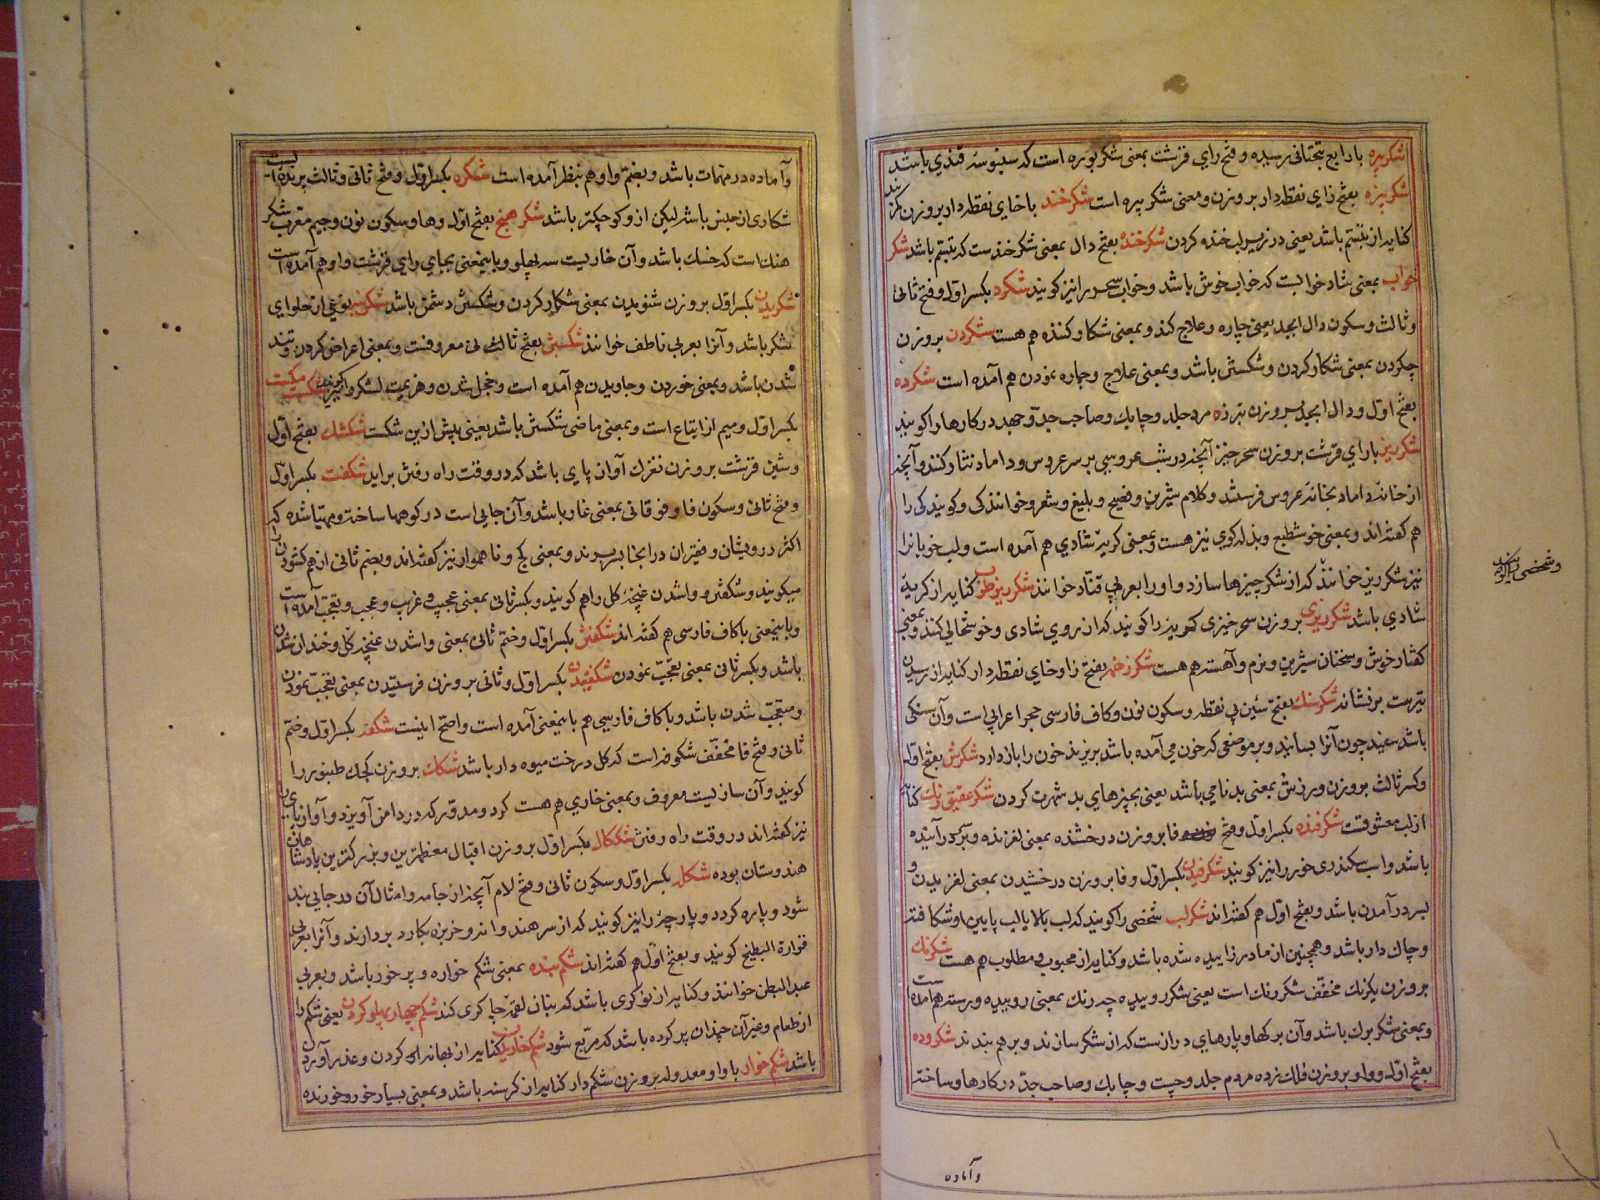 شکربیره بارابع بتحتانی رسیده و فتح رای قرشت بمعنی شکربوره است که سنبوسه قندی باشد
شکربیزه بفتح زای نقطه‌دار بروزن و معنی شکربیره است شکرخند با خای نقطه‌دار بروزن
کنایه از تبسم باشد یعنی در زیر لب خنده کردن شکرخنده بفتح دال بمعنی شکرخندست که تبسم باشد شکر
خواب بمعنی شاد خوابست که خواب خوش باشد و خواب سحر را نیز کویند شکرد بکسر اول و فتح ثانی
و ثالث و سکون دال ابجد یعنی چاره و علاج کند و بمعنی شکار کننده هم هست شکردن بروزن
چکردن بمعنی شکار کردن و شکستن باشد و بمعنی علاج و چاره نمودن هم آمده است شکرده
بفتح اول و دال ابجد بروزن مرد جلد و چابک و صاحب جد و جهد در کارها را کویند
شکرریز بارای قرشت بروزن سحرخیز آنچه در شب عروسی بر سر عروس و داماد نثار کنند و آنچه
از خانه داماد بخانه عروس فرستند و کلام شیرین و فصیح و بلیغ و شعر و خوانندکی و کویندکی را
هم کفته‌اند و بمعنی خوش طبع و بذله کوی نیز هست و بمعنی کریه شادی هم آمده است و لب خوبانرا
نیز شکرریز خوانند که از شکر چیزها سازد و او را بعربی قناد خوانند شکرریز طرب کنایه از کریه
وشخصی را نیز کویند
شادی باشد شکرریزی بروزن سحرخیزی کریه را کویند که از روی شادی و خوشحالی کنند و بمعنی
کفتار خوش و سخنان شیرین و نرم و آهسته هم هست شکرزخمه بفتح زا و خای نقطه‌دار کنایه از رسیدن
تیرست بر نشانه شکرسنک بفتح سین بی نقطه و سکون نون و کاف فارسی حجر اعرابی است و آن سنکی
باشد سفید چون آنرا بسایند و بر موضعی که خون می آمده باشد بریزند خون را باز دارد شکرش بفتح اول
و کسر ثالث بروزن ورزش بمعنی بدنامی باشد یعنی بچیزهای بد شهرت کردن شکر عقیق رنک کنایه
از لب معشوقست شکرفنده بکسر اول و فتح فا بروزن درخشنده بمعنی لغزنده و بسر درآینده
باشد و اسب سکندری خور را نیز کویند شکرفیدن بکسر اول و فا بروزن درخشیدن بمعنی لغزیدن و
بسر درآمدن باشد و بفتح اول هم کفته‌اند شکرلب شخصی را کویند که لب بالا یا لب پایین او شکافته
و چاک دار باشد و همچنین از مادر زاییده شده باشد و کنایه از محبوب و مطلوب هم هست شکرنک
بروزن یکرنک مخفف شکررنک است یعنی شکر روییده چه رنک بمعنی روییده و رسته هم آمده است
و بمعنی شکربرک باشد و آن برکها و پارهای درازست که از شکر سازند و بر هم بندند شکروده
بفتح اول و واو بروزن فلک زده مردم جلد و چست و چابک و صاحب جد در کارها و ساخته
وآماده
وآماده در مهمات باشد و بضم واو هم بنظر آمده است شکره بکسر اول و فتح ثانی و ثالث پرنده‌ایست
شکاری از جنس باشه لیکن ازو کوچکتر باشد شکرهنج بفتح اول و ها و سکون نون و جیم معرب شکر
هنک است که خسک باشد و آن خاریست سه پهلو و باینمعنی بجای رای قرشت واو هم آمده است
شکریدن بکسر اول بروزن شنویدن بمعنی شکار کردن و شکستن دشمن باشد شکرینه نوعی از حلوای
شکر باشد و آنرا بعربی ناطف خوانند شکستن بفتح ثالث معروفست و بمعنی اعراض کردن و تند
شدن باشد و بمعنی خوردن و جاویدن هم آمده است و خجل شدن و هزیمت لشکر را نیز کویند
بکسر اول و میم از اتباع است و بمعنی ماضی شکستن باشد یعنی پیش ازین شکست شکشک بفتح اول
و شین قرشت بروزن نغزک آواز پای باشد که در وقت راه رفتن برآید شکفت بکسر اول
و فتح ثانی و سکون فا و فوقانی بمعنی غار باشد و آن جایی است در کوهها ساخته و مهیا شده که
اکثر درویشان و فقیران در آنجا بسر برند و بمعنی کج و ناهموار نیز کفته‌اند و بضم ثانی از هم کشودن
میکویند و شکفتن و واشدن غنچه کل را هم کویند و بکسر ثانی بمعنی عجیب و غریب و عجب و تعجب آمده است
و باینمعنی با کاف فارسی هم کفته‌اند شکفتن بکسر اول و ضم ثانی بمعنی واشدن غنچه کل و خندان شدن
باشد و بکسر ثانی بمعنی تعجب نمودن شکفتیدن بکسر اول و ثانی بروزن فرستیدن بمعنی تعجب نمودن
و متعجب شدن باشد و با کاف فارسی هم باینمعنی آمده است و اصح اینست شکفه بکسر اول و ضم
ثانی و فتح فا مخفف شکوفه است که کل درخت میوه دار باشد شکک بروزن کجک طنبور را
کویند و آن سازیست معروف و بمعنی خاری هم هست کرد و مدور که در دامن آویزد و آواز پای
نیز کفته‌اند در وقت راه رفتن شککال بکسر اول بروزن اقبال معظمترین و بزرکترین پادشاهان
هندوستان بوده شکله بکسر اول و سکون ثانی و فتح لام آنچه از جامه و امثال آن در جایی بند
شود و پاره کردد و پارچه را نیز کویند که از سر هندوانه و خربزه بکارد بردارند و آنرا بعربی
قوارة البطیخ کویند و بفتح اول هم کفته‌اند شکم بنده بمعنی شکم خواره و پرخور باشد و بعربی
عبدالبطن خوانند و کنایه از نوکری باشد که بنان لقمه چاکری کند شکم چهار پهلو کردن یعنی شکم را
از طعام و غیر آن چندان پر کرده باشد که مربع شود شکم خاریدن کنایه از بهانه‌ای کردن و عذر آوردن
باشد شکم خوار با واو معدوله بروزن شکم دار کنایه از کرسنه باشد و بمعنی بسیار خور و خورنده